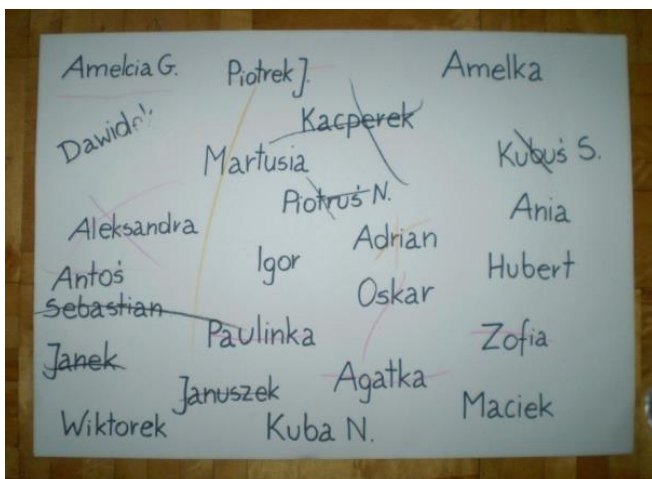 Amelcia G.
Piotrek J.
Amelka
Kacperek
Martusia
Kubuś S.
Piotruś N.
Ania
Aleksandra
Adrian
Igor
Hubert
Antoś
Oskar
Sebastian
Paulinka
Zofia
Janek
Agatka
Januszek
Maciek
Wiktorek
Kuba N.